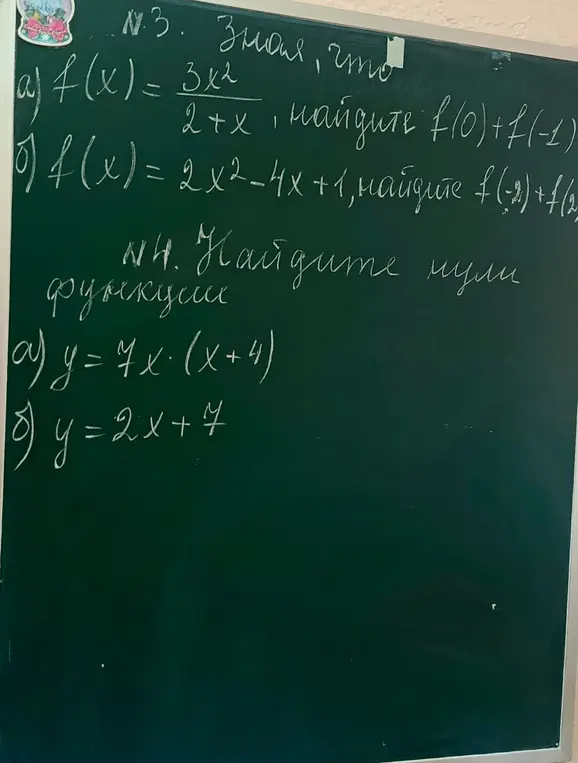 №3. Зная, что
а) f(x) = 3x²/(2+x), найдите f(0)+f(-1)
б) f(x) = 2x²-4x+1, найдите f(-2)+f(2)
№4. Найдите нули
функции
а) y = 7x·(x+4)
б) y = 2x+7